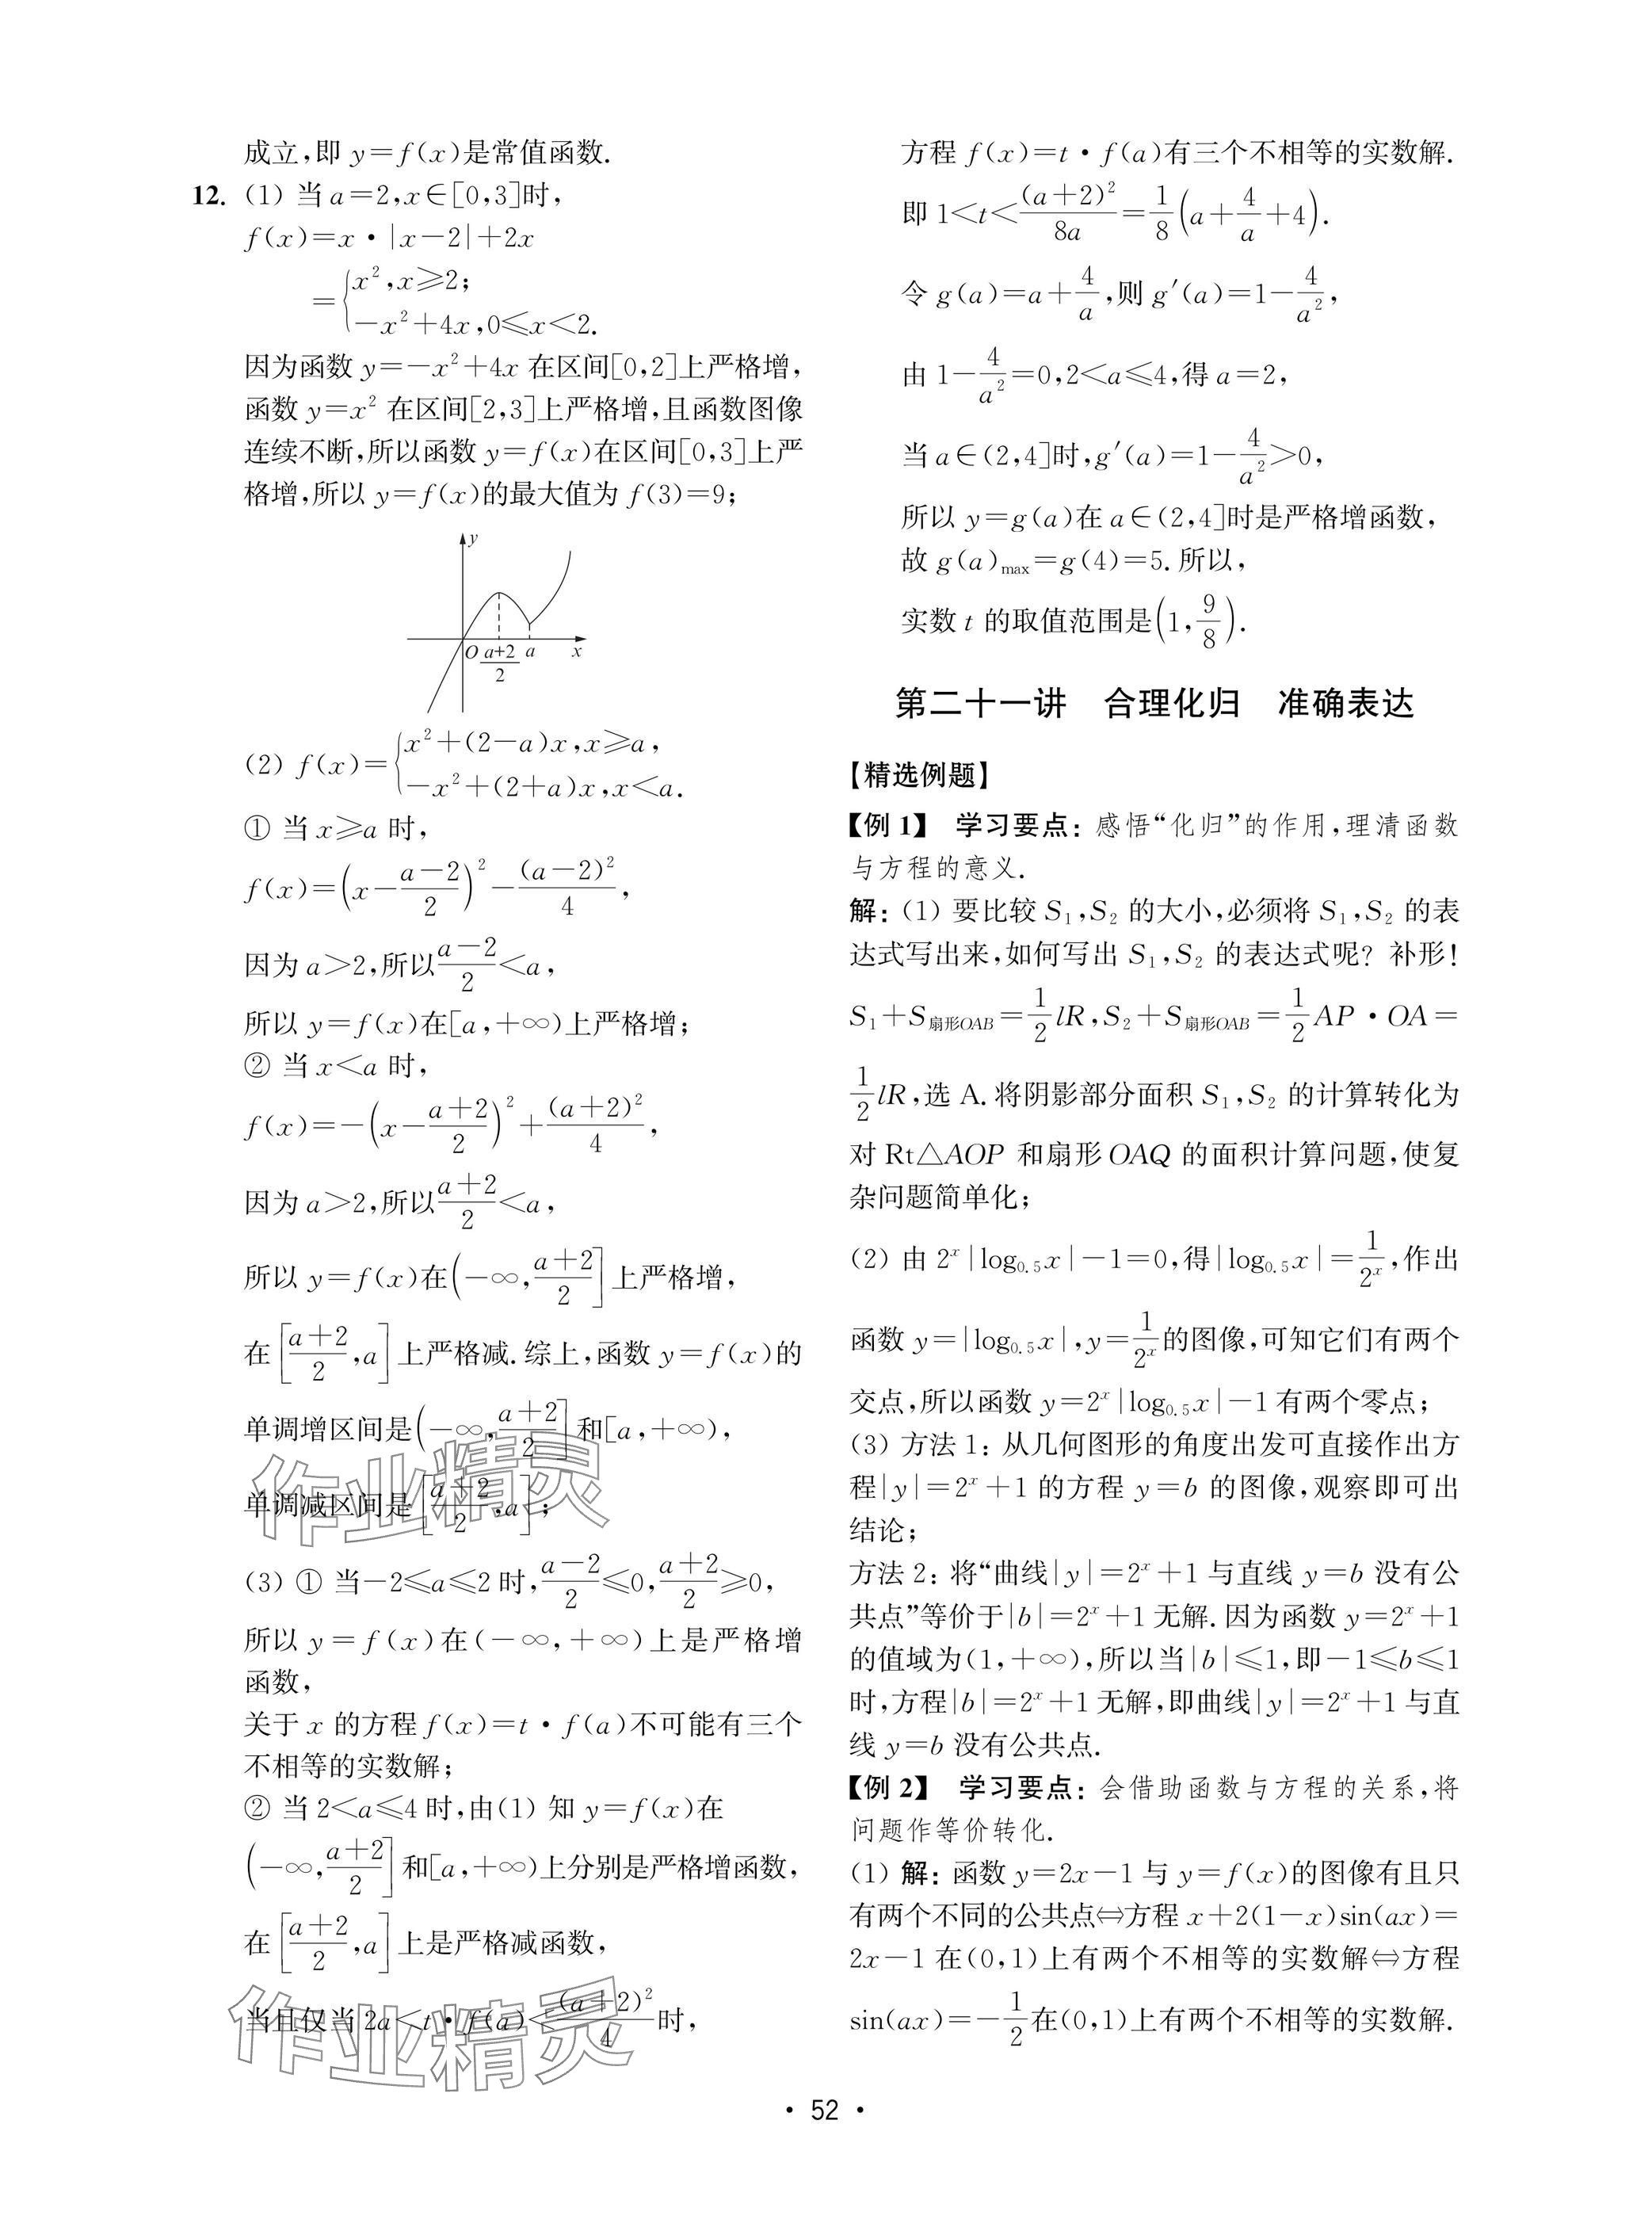 成立,即 y=f(x)是常值函数.
12. (1) 当 a=2,x∈[0,3]时,
f(x)=x·|x-2|+2x
={x²,x≥2;
-x²+4x,0≤x<2.
因为函数 y=-x²+4x 在区间[0,2]上严格增,
函数 y=x² 在区间[2,3]上严格增,且函数图像
连续不断,所以函数 y=f(x)在区间[0,3]上严
格增,所以 y=f(x)的最大值为 f(3)=9;
y
O (a+2)/2 a x
(2) f(x)={x²+(2-a)x,x≥a,
-x²+(2+a)x,x<a.
① 当 x≥a 时,
f(x)=(x-(a-2)/2)²-(a-2)²/4,
因为 a>2,所以(a-2)/2<a,
所以 y=f(x)在[a,+∞)上严格增;
② 当 x<a 时,
f(x)=-(x-(a+2)/2)²+(a+2)²/4,
因为 a>2,所以(a+2)/2<a,
所以 y=f(x)在(-∞,(a+2)/2]上严格增,
在[(a+2)/2,a]上严格减.综上,函数 y=f(x)的
单调增区间是(-∞,(a+2)/2]和[a,+∞),
单调减区间是[(a+2)/2,a];
(3) ① 当-2≤a≤2 时,(a-2)/2≤0,(a+2)/2≥0,
所以 y=f(x)在(-∞,+∞)上是严格增
函数,
关于 x 的方程 f(x)=t·f(a)不可能有三个
不相等的实数解;
② 当 2<a≤4 时,由(1) 知 y=f(x)在
(-∞,(a+2)/2]和[a,+∞)上分别是严格增函数,
在[(a+2)/2,a]上是严格减函数,
当且仅当 2a<t·f(a)<(a+2)²/4时,
方程 f(x)=t·f(a)有三个不相等的实数解.
即 1<t<(a+2)²/8a=1/8(a+4/a+4).
令 g(a)=a+4/a,则 g′(a)=1-4/a²,
由 1-4/a²=0,2<a≤4,得 a=2,
当 a∈(2,4]时,g′(a)=1-4/a²>0,
所以 y=g(a)在 a∈(2,4]时是严格增函数,
故 g(a)max=g(4)=5.所以,
实数 t 的取值范围是(1,9/8).
第二十一讲 合理化归 准确表达
【精选例题】
【例 1】 学习要点:感悟“化归”的作用,理清函数
与方程的意义.
解:(1) 要比较 S₁,S₂ 的大小,必须将 S₁,S₂ 的表
达式写出来,如何写出 S₁,S₂ 的表达式呢? 补形!
S₁+S扇形OAB=1/2 lR,S₂+S扇形OAB=1/2 AP·OA=
1/2 lR,选 A.将阴影部分面积 S₁,S₂ 的计算转化为
对 Rt△AOP 和扇形 OAQ 的面积计算问题,使复
杂问题简单化;
(2) 由 2ˣ|log₀.₅x|-1=0,得|log₀.₅x|=1/2ˣ,作出
函数 y=|log₀.₅x|,y=1/2ˣ的图像,可知它们有两个
交点,所以函数 y=2ˣ|log₀.₅x|-1 有两个零点;
(3) 方法 1:从几何图形的角度出发可直接作出方
程|y|=2ˣ+1 的方程 y=b 的图像,观察即可出
结论;
方法 2:将“曲线|y|=2ˣ+1 与直线 y=b 没有公
共点”等价于|b|=2ˣ+1 无解.因为函数 y=2ˣ+1
的值域为(1,+∞),所以当|b|≤1,即-1≤b≤1
时,方程|b|=2ˣ+1 无解,即曲线|y|=2ˣ+1 与直
线 y=b 没有公共点.
【例 2】 学习要点:会借助函数与方程的关系,将
问题作等价转化.
(1) 解:函数 y=2x-1 与 y=f(x)的图像有且只
有两个不同的公共点⇔方程 x+2(1-x)sin(ax)=
2x-1 在(0,1)上有两个不相等的实数解⇔方程
sin(ax)=-1/2在(0,1)上有两个不相等的实数解.
作业精灵
作业精灵
· 52 ·